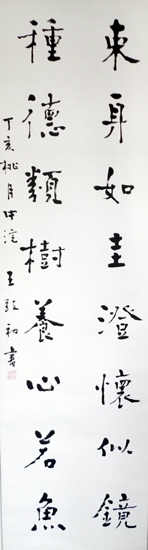 束身如圭澄懷似鏡
種德類樹養心若魚
丁亥桃月中浣王敬和書